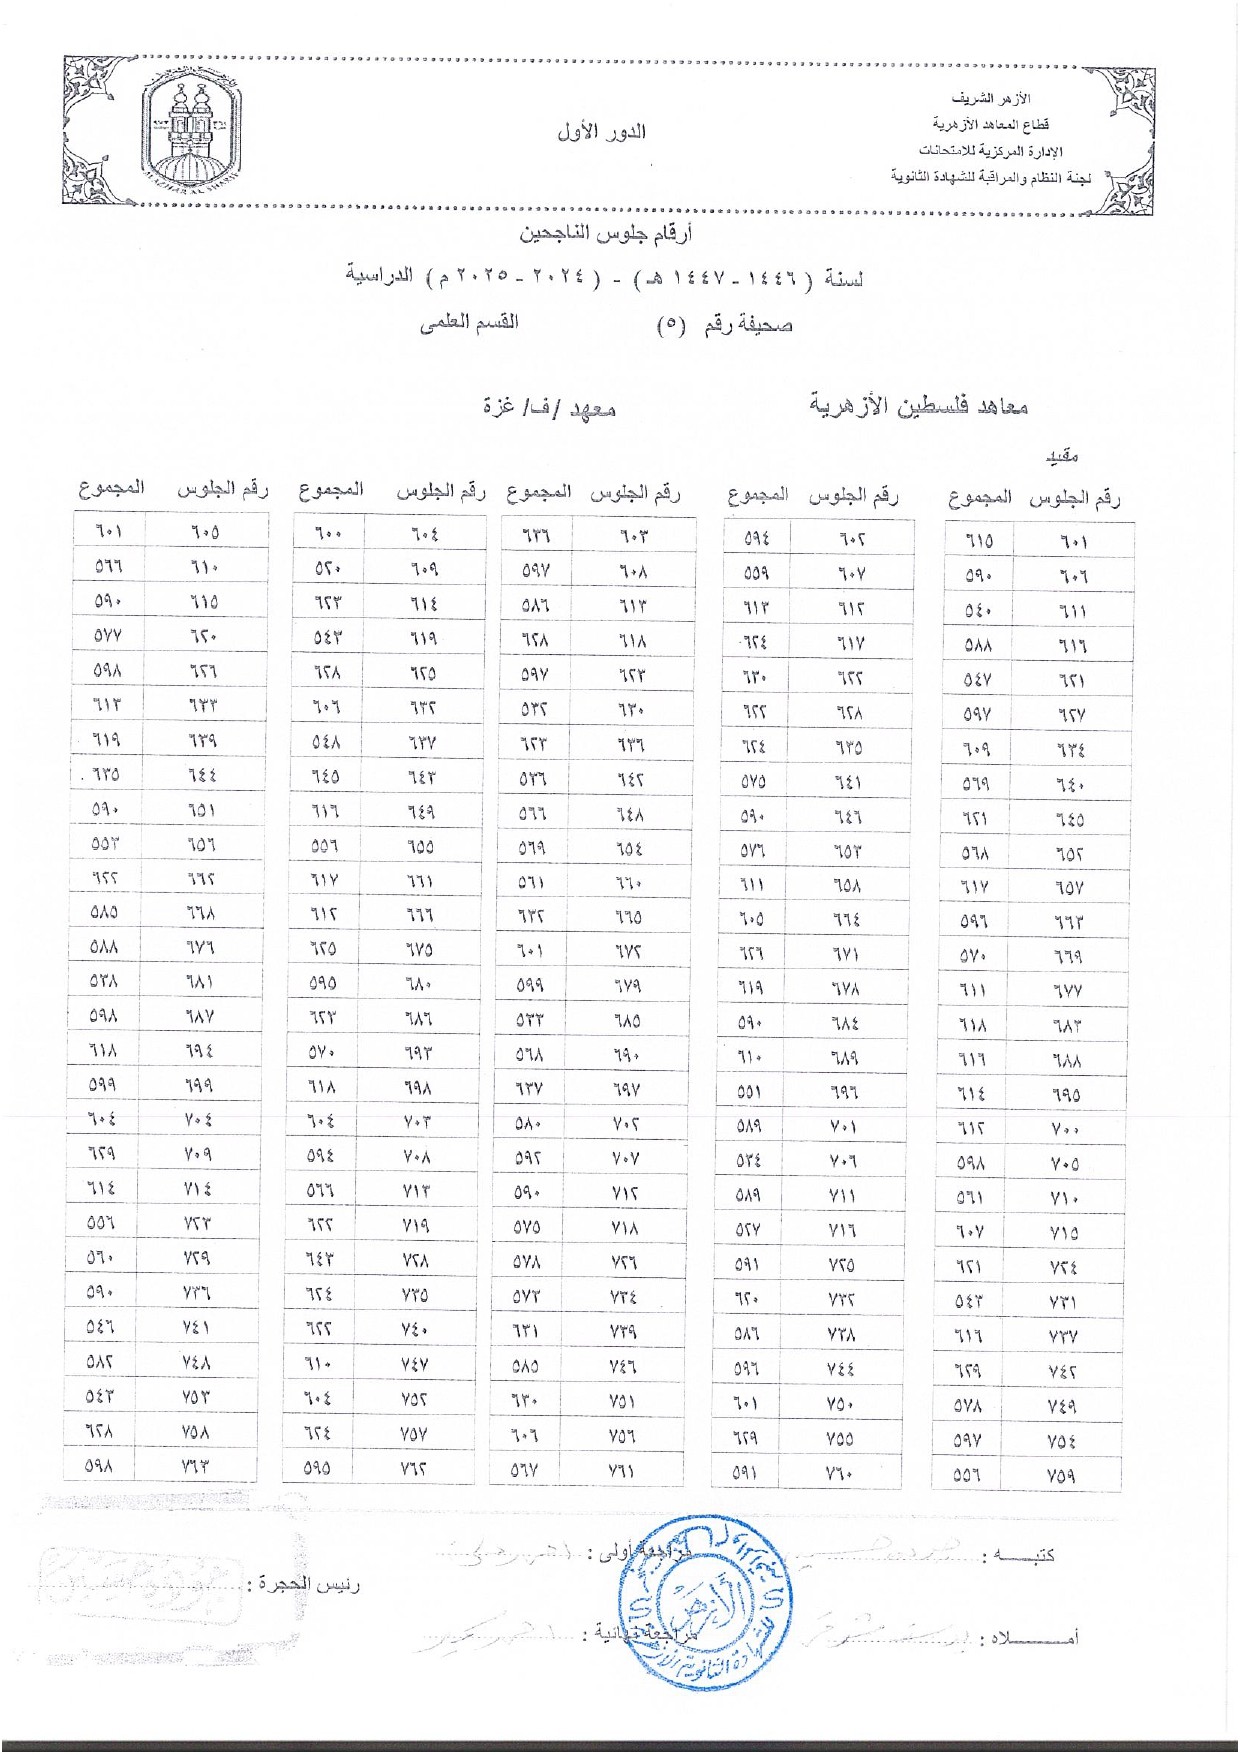 الأزهر الشريف
قطاع المعاهد الأزهرية
الإدارة المركزية للامتحانات
لجنة النظام والمراقبة للشهادة الثانوية
الدور الأول
أرقام جلوس الناجحين
لسنة ( ١٤٤٦ - ١٤٤٧ هـ ) - ( ٢٠٢٤ - ٢٠٢٥ م ) الدراسية
صحيفة رقم (٥) القسم العلمى
معاهد فلسطين الأزهرية معهد /ف/ غزة
مقيد
رقم الجلوس المجموع رقم الجلوس المجموع رقم الجلوس المجموع رقم الجلوس المجموع رقم الجلوس المجموع
٦٠١ ٦١٥ ٦٠٢ ٥٩٤ ٦٠٣ ٦٣٦ ٦٠٤ ٦٠٠ ٦٠٥ ٦٠١
٦٠٦ ٥٩٠ ٦٠٧ ٥٥٩ ٦٠٨ ٥٩٧ ٦٠٩ ٥٢٠ ٦١٠ ٥٦٦
٦١١ ٥٤٠ ٦١٢ ٦١٣ ٦١٣ ٥٨٦ ٦١٤ ٦٢٣ ٦١٥ ٥٩٠
٦١٦ ٥٨٨ ٦١٧ ٦٢٤ ٦١٨ ٦٢٨ ٦١٩ ٥٤٣ ٦٢٠ ٥٧٧
٦٢١ ٥٤٧ ٦٢٢ ٦٣٠ ٦٢٣ ٥٩٧ ٦٢٥ ٦٢٨ ٦٢٦ ٥٩٨
٦٢٧ ٥٩٧ ٦٢٨ ٦٢٢ ٦٣٠ ٥٣٢ ٦٣٢ ٦٠٦ ٦٣٣ ٦١٣
٦٣٤ ٦٠٩ ٦٣٥ ٦٢٤ ٦٣٦ ٦٢٣ ٦٣٧ ٥٤٨ ٦٣٩ ٦١٩
٦٤٠ ٥٦٩ ٦٤١ ٥٧٥ ٦٤٢ ٥٣٦ ٦٤٣ ٦٤٥ ٦٤٤ ٦٣٥
٦٤٥ ٦٢١ ٦٤٦ ٥٩٠ ٦٤٨ ٥٦٦ ٦٤٩ ٦١٦ ٦٥١ ٥٩٠
٦٥٢ ٥٦٨ ٦٥٣ ٥٧٦ ٦٥٤ ٥٦٩ ٦٥٥ ٥٥٦ ٦٥٦ ٥٥٣
٦٥٧ ٦١٧ ٦٥٨ ٦١١ ٦٦٠ ٥٦١ ٦٦١ ٦١٧ ٦٦٢ ٦٢٢
٦٦٣ ٥٩٦ ٦٦٤ ٦٠٥ ٦٦٥ ٦٣٢ ٦٦٦ ٦١٢ ٦٦٨ ٥٨٥
٦٦٩ ٥٧٠ ٦٧١ ٦٢٦ ٦٧٢ ٦٠١ ٦٧٥ ٦٢٥ ٦٧٦ ٥٨٨
٦٧٧ ٦١١ ٦٧٨ ٦١٩ ٦٧٩ ٥٩٩ ٦٨٠ ٥٩٥ ٦٨١ ٥٣٨
٦٨٣ ٦١٨ ٦٨٤ ٥٩٠ ٦٨٥ ٥٣٣ ٦٨٦ ٦٢٣ ٦٨٧ ٥٩٨
٦٨٨ ٦١٦ ٦٨٩ ٦١٠ ٦٩٠ ٥٦٨ ٦٩٣ ٥٧٠ ٦٩٤ ٦١٨
٦٩٥ ٦١٤ ٦٩٦ ٥٥١ ٦٩٧ ٦٣٧ ٦٩٨ ٦١٨ ٦٩٩ ٥٩٩
٧٠٠ ٦١٢ ٧٠١ ٥٨٩ ٧٠٢ ٥٨٠ ٧٠٣ ٦٠٤ ٧٠٤ ٦٠٤
٧٠٥ ٥٩٨ ٧٠٦ ٥٣٤ ٧٠٧ ٥٩٢ ٧٠٨ ٥٩٤ ٧٠٩ ٦٢٩
٧١٠ ٥٦١ ٧١١ ٥٨٩ ٧١٢ ٥٩٠ ٧١٣ ٥٦٦ ٧١٤ ٦١٤
٧١٥ ٦٠٧ ٧١٦ ٥٢٧ ٧١٨ ٥٧٥ ٧١٩ ٦٢٢ ٧٢٣ ٥٥٦
٧٢٤ ٦٢١ ٧٢٥ ٥٩١ ٧٢٦ ٥٧٨ ٧٢٨ ٦٤٣ ٧٢٩ ٥٦٠
٧٣١ ٥٤٣ ٧٣٢ ٦٢٠ ٧٣٤ ٥٧٣ ٧٣٥ ٦٢٤ ٧٣٦ ٥٩٠
٧٣٧ ٦١٦ ٧٣٨ ٥٨٦ ٧٣٩ ٦٣١ ٧٤٠ ٦٢٢ ٧٤١ ٥٤٦
٧٤٢ ٦٢٩ ٧٤٤ ٥٩٦ ٧٤٦ ٥٨٥ ٧٤٧ ٦١٠ ٧٤٨ ٥٨٢
٧٤٩ ٥٧٨ ٧٥٠ ٦٠١ ٧٥١ ٦٣٠ ٧٥٢ ٦٠٤ ٧٥٣ ٥٤٣
٧٥٤ ٥٩٧ ٧٥٥ ٦٢٩ ٧٥٦ ٦٠٦ ٧٥٧ ٦٢٤ ٧٥٨ ٦٢٨
٧٥٩ ٥٥٦ ٧٦٠ ٥٩١ ٧٦١ ٥٦٧ ٧٦٢ ٥٩٥ ٧٦٣ ٥٩٨
كتبـــه : مراجعة أولى :
رئيس الحجرة :
أمـــــلاه : مراجعة نهائية :
الأزهر